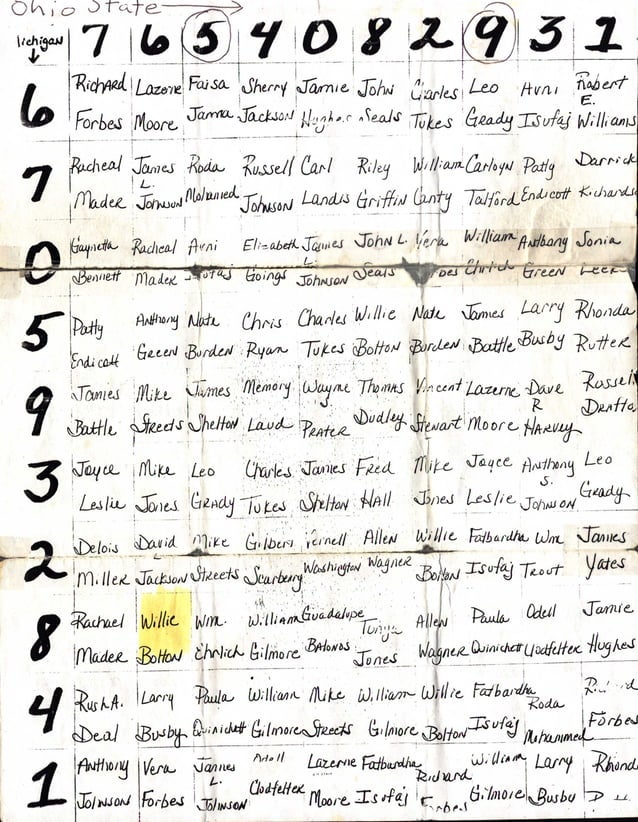 Ohio State
Michigan 7 6 5 4 0 8 2 9 3 1
6 Richard Lazerne Faisa Sherry Jamie John Charles Leo Avni Robert E.
Forbes Moore Janna Jackson Hughes Seals Tukes Grady Isufaj Williams
7 Racheal James L. Roda Russell Carl Riley William Carloyn Patly Darrick
Mader Johnson Mohamed Johnson Landis Griffin Canty Talford Endicott Richards
0 Gaynetta Racheal Avni Elizabeth James L. John L. Vera William Anthony Sonia
Bennett Mader Isufaj Goings Johnson Seals Ehrlich Green
5 Patly Anthony Nate Chris Charles Willie Nate James Larry Rhonda
Endicott Green Burden Ryan Tukes Bolton Burden Battle Busby Rutter
9 James Mike James Memory Wayne S. Thomas Vincent Lazerne Dave R Russell
Battle Streets Shelton Laud Prater Dudley Stewart Moore Harvey
3 Joyce Mike Leo Charles James Fred Mike Joyce Anthony S. Leo
Leslie Jones Grady Tukes Shelton Hall Jones Leslie Johnson Grady
2 Delois David L Mike Gilbert Vernell Allen Willie Fatbardha Wm James
Miller Jackson Streets Scarberry Washington Wagner Bolton Isufaj Trout Yates
8 Rachael Willie Wm. William Guadalupe Tunya Allen Paula Odell Jamie
Mader Bolton Ehrlich Gilmore Bahonos Jones Wagner Quinichett Clodfelter Hughes
4 Rush A. Larry Paula William Mike William Willie Fatbardha Roda
Deal Busby Quinichett Gilmore Streets Gilmore Bolton Isufaj Mohammed Forbes
1 Anthony Vera James L. Odell Lazerne Fatbardha Richard William Larry Rhond
Johnson Forbes Johnson Clodfelter Moore Isufaj Forbes Gilmore Busby